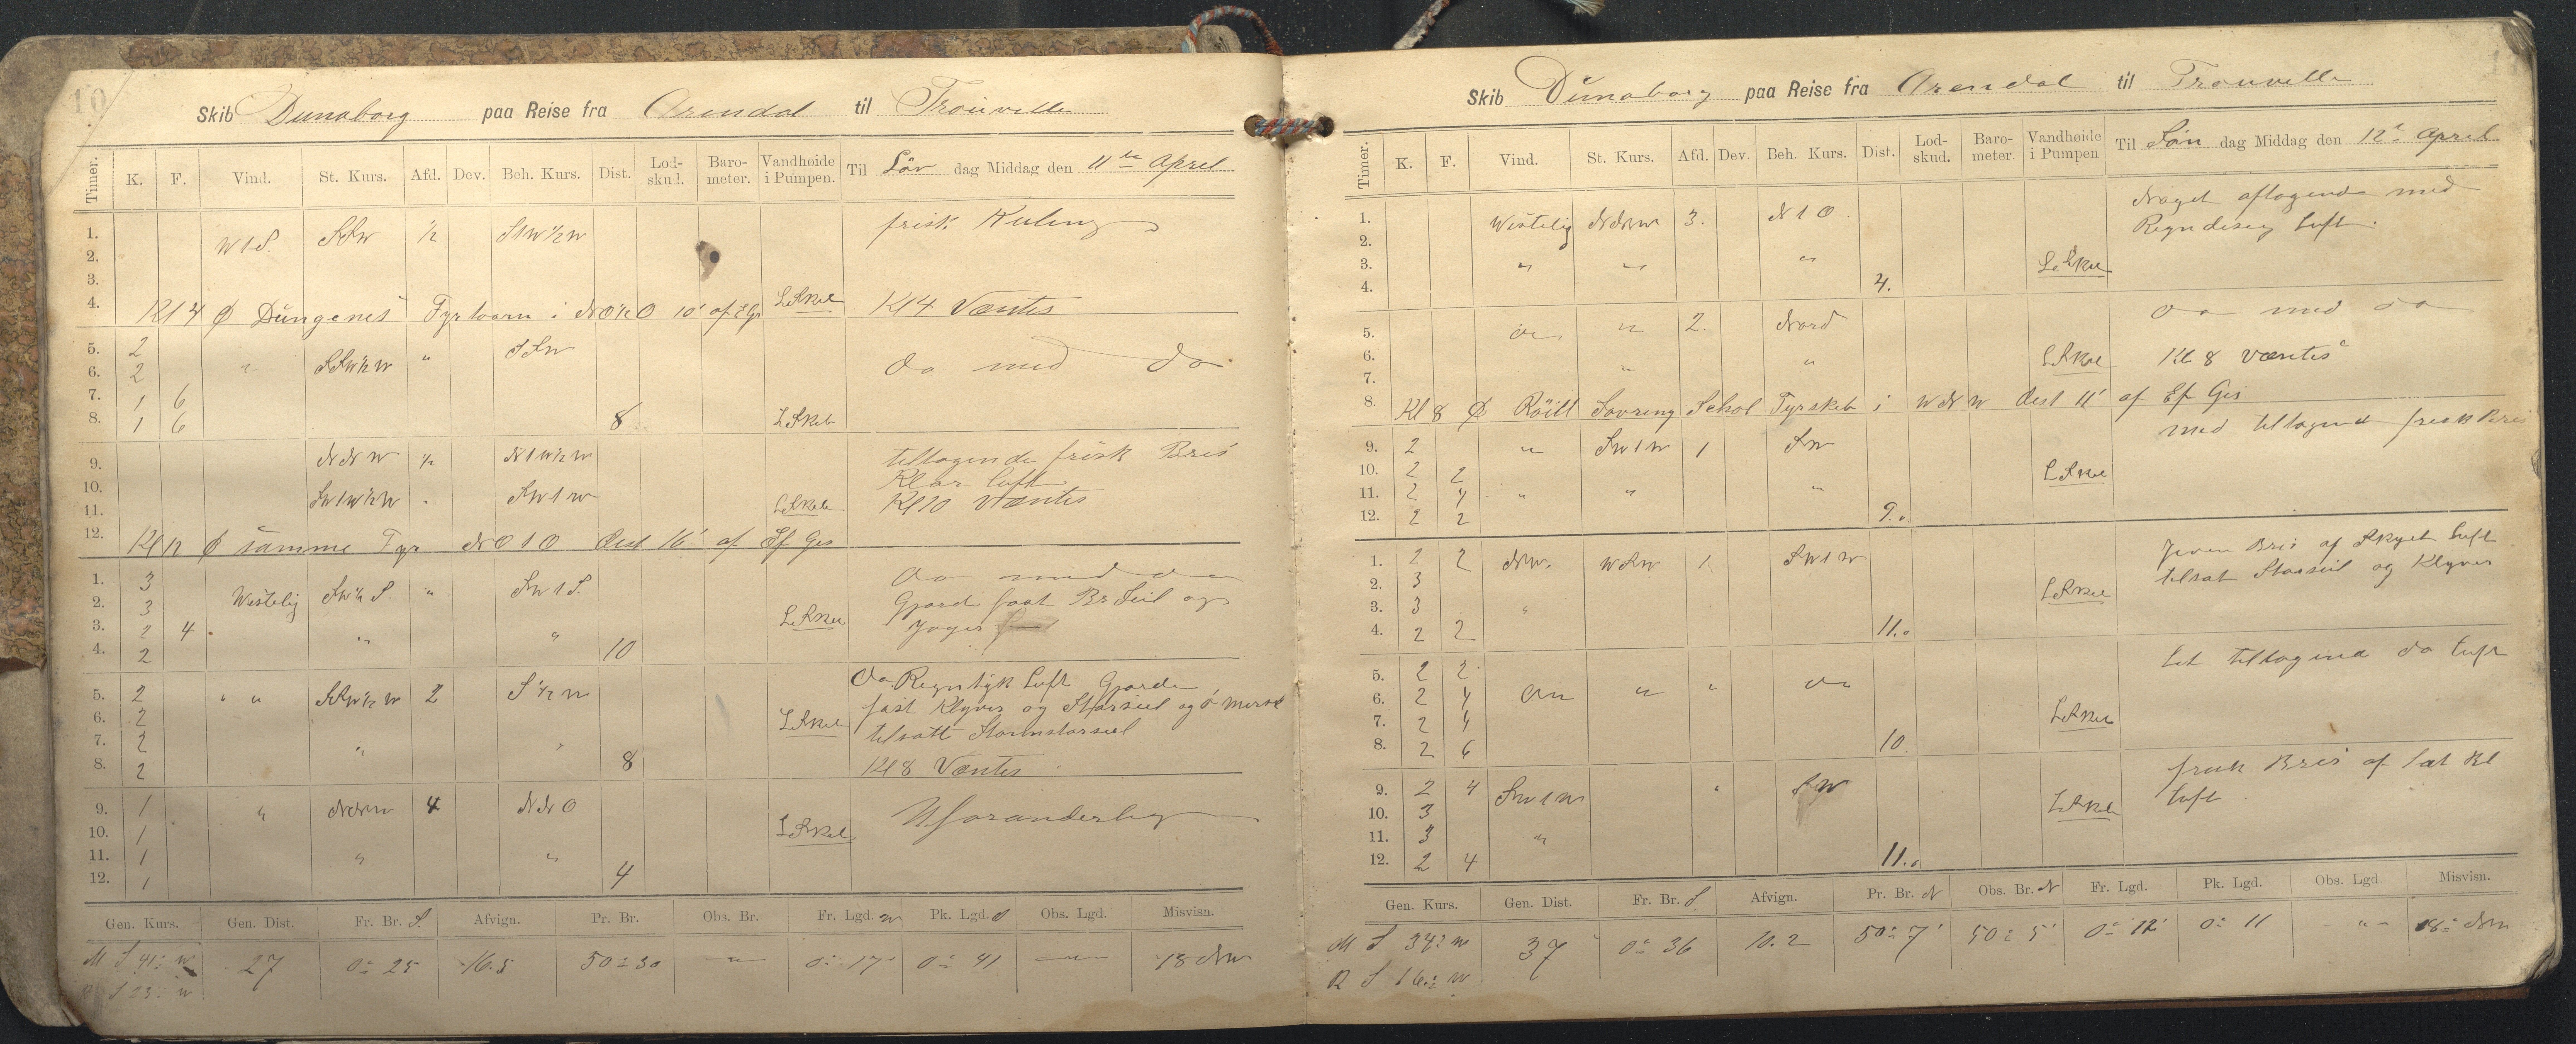 10
Skib Dunaborg paa Reise fra Arendal til Trouville
Timer. K. F. Vind. St. Kurs. Afd. Dev. Beh. Kurs. Dist. Lod-skud. Baro-meter. Vandhøide i Pumpen. Til Lør dag Middag den 11te April
1. W t S. SSW ½ S t W ½ W frisk Kuling
2.
3.
4. Kl 4 Dungenes Fyrtaarn i NO½O 10' af Kl 4 Væntes
5. 2 " SSW½W " SSW do med do
6. 2
7. 1 6
8. 1 6 8 Læk
9. NNW ½ N t W½W tiltagende frisk Bris
Klar Luft
10. SWtW½W " SW t W Kl 10 Væntes
11.
12. Kl 12 samme Fyr NO t O dist 16' af
1. 3 Westelig SW½S. " SW t S. do med do
2. 3 Gjorde fast Br Seil og
3. 2 4 " " Jager
4. 2 10
5. 2 " " SSW½W 2 S½W do Regntyk Luft Gjorde
6. 2 fast Klyver og Storseil og
7. 2 " " tilsatt Stormstorseil
8. 2 8 Kl 8 Væntes
9. 1 " NNW 4 NNO Uforanderlig
10. 1
11. 1 " "
12. 1 4
Gen. Kurs. Gen. Dist. Fr. Br. S. Afvign. Pr. Br. Obs. Br. Fr. Lgd. W Pk. Lgd. O Obs. Lgd. Misvisn.
M S 41° W 27 0° 25 16.5 50° 30 — " — 0° 17 0° 41 — " — 18 NW
R S 23° W
Skib Dünaborg paa Reise fra Arendal til Trouville
Timer. K. F. Vind. St. Kurs. Afd. Dev. Beh. Kurs. Dist. Lod-skud. Baro-meter. Vandhøide i Pumpen. Til Søn dag Middag den 12te April
1. Westelig NNW 3. N t O. Noget aftagende med
2. Regndisig Luft.
3. " " "
4. 4.
5. do " 2. Nord do med do
6. " " Kl 8 Væntes
7.
8. Kl 8 Fyrskib i WNW dist 11' af
med tiltagend frisk Bris
9. 2 " SW t W 1 SW
10. 2 2
11. 2 4 " " "
12. 2 2 9.
1. 2 2 NW. WSW 1. SW t W Jevn Bris af Skyet Luft
2. 3 tilsat Storseil og Klyver
3. 3 "
4. 2 2 11.
5. 2 2 do " " do Lit tiltagend do Luft
6. 2 4
7. 2 4
8. 2 6 10.
9. 2 4 SW t W " SW frisk Bris af
10. 3 Luft
11. 3 "
12. 2 4 11.
Gen. Kurs. Gen. Dist. Fr. Br. S. Afvign. Pr. Br. N Obs. Br. N Fr. Lgd. Pk. Lgd. Obs. Lgd Misvisn.
M S 34° W 37 0° 36 10.2 50° 7' 50° 5' 0° 12' 0° 11 — " — 18° NW
R S 16° W